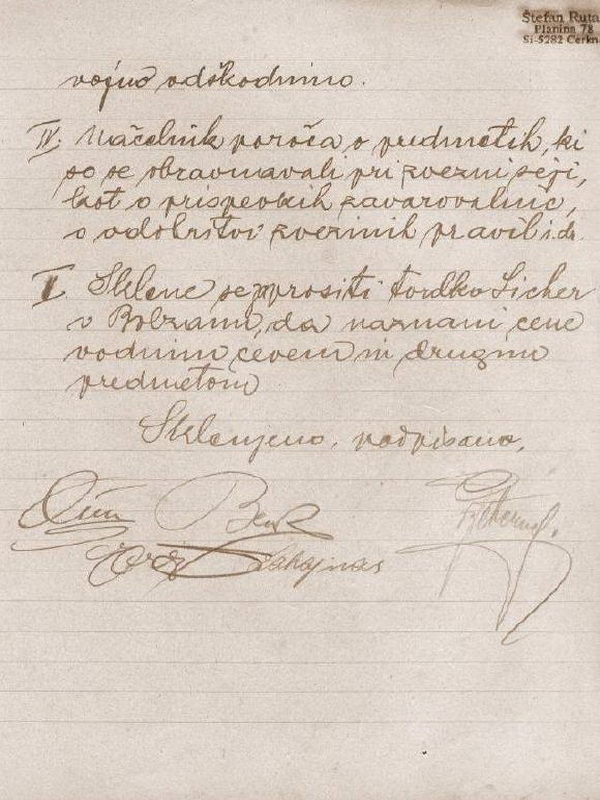 Štefan Ruta
Planina 78
SI-5282 Cerkn
vojno odškodnino.
IV. Načelnik poroča o predmetih, ki
so se obravnavali pri zvezni seji,
kot o prispevkih zavarovalnic,
o odobritvi zvezinih pravil i.dr.
V. Sklene se prositi tvrdko Licher
v Bolzanu, da naznani cene
vodnim cevem in drugim
predmetom
Sklenjeno, podpisano,
Benk
Lahajnar